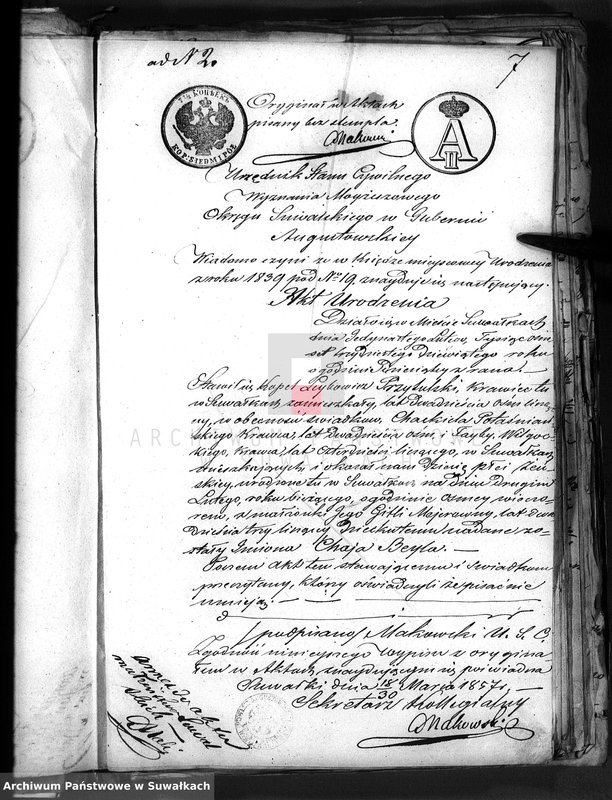 ad N 2.
7
7½ КОПѢЕКЪ
KOP: SIEDM I PÓŁ
A II
Oryginał w Aktach
pisany bez stempla.
Makowski
Urzędnik Stanu Cywilnego
Wyznania Mojżeszowego
Okręgu Suwalskiego w Gubernii
Augustowskiey
Wiadomo czyni że w Księdze mieyscowey Urodzenia
z roku 1839 pod No 19, znayduje się następujący.
Akt Urodzenia
Działo się w Mieście Suwałkach
dnia Jedynastego Lutego, Tysiąc ośm
set trzydziestego Dziewiątego roku
o godzinie Dziesiątey z rana.
Stawił się Kopel Leybowicz Przytulski, Krawiec tu
w Suwałkach zamieszkały, lat dwadzieścia ośm liczą-
cy, w obecności świadków, Chackiela
skiego Krawca, lat Dwadzieścia ośm, i
kiego, Krawca, lat Czterdzieści liczącego, w Suwałkach
mieszkających, i okazał nam Dziecię płci żeń-
skiey, urodzone tu w Suwałkach na dniu Drugim
Lutego, roku bieżącego, o godzinie osmey wieczo-
rem, z małżonki Jego Gitli Majerowny, lat dwa-
dzieścia trzy liczącey Dziecięciu temu nadane zo-
stały Imiona Chaja Beyla. —
Poczem akt ten stawającemu i świadkom
przeczytany, którzy oświadczyli że pisać nie
umieją —
(podpisano) Makowski U. S. C.
Zgodność ninieyszego wypisu z orygina-
łem w Aktach znayduiącym się, poświadcza
Suwałki dnia 18/30 Marca 1857 r. —
Sekretarz Kollegialny
Makowski
Archiwum Państwowe w Suwałkach